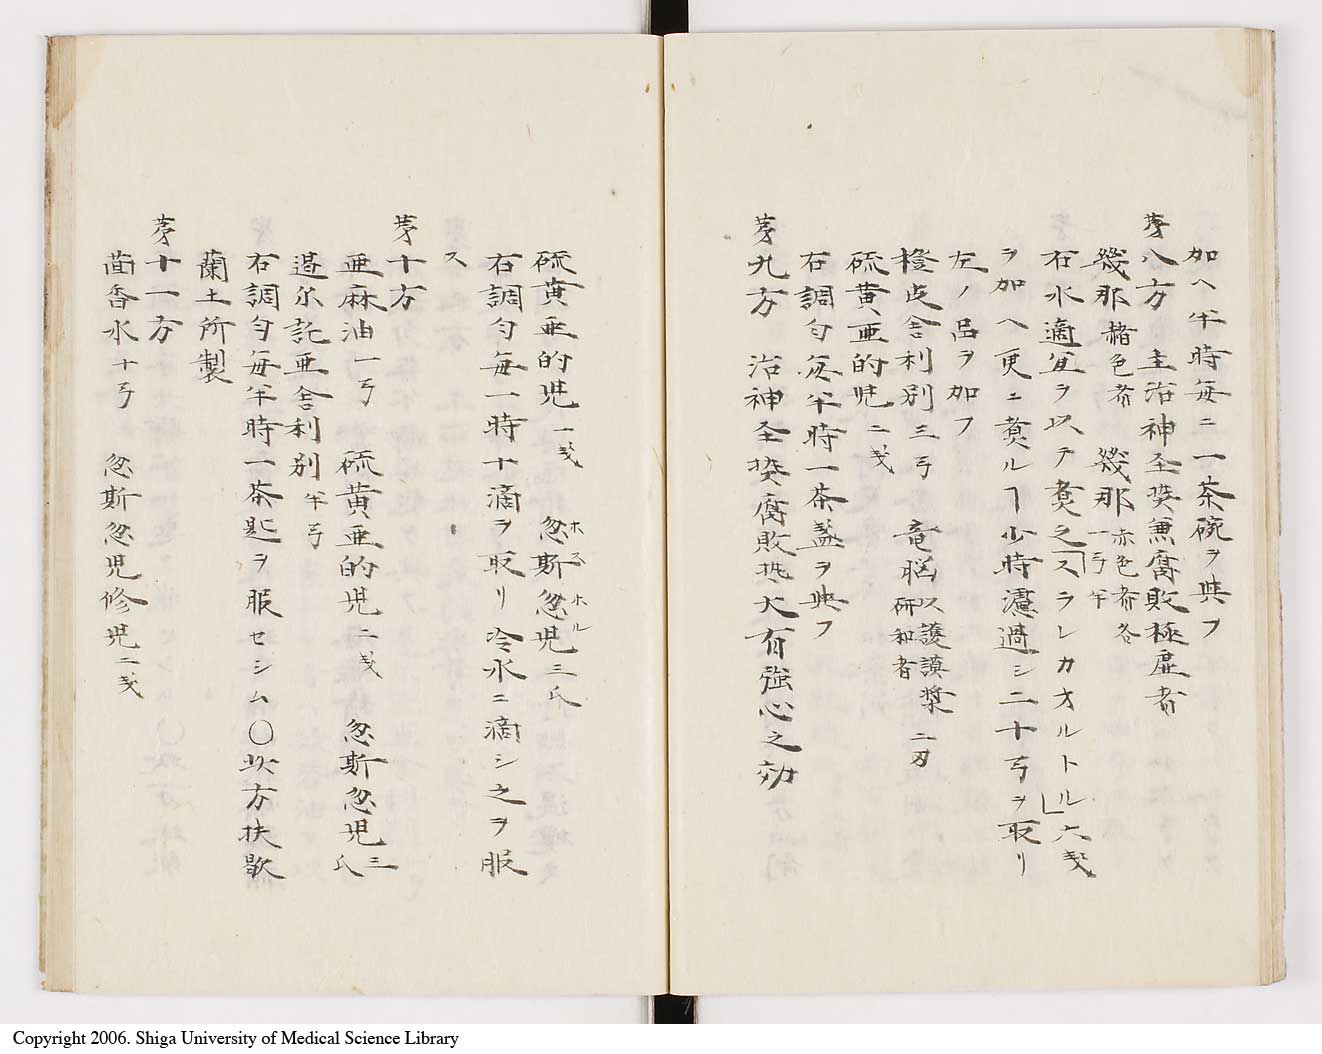 加ヘ半時毎ニ一茶碗ヲ與フ
苐八方 主治神圣㷼兼腐敗極虚者
幾那 赭色者 幾那 赤色者各一弓半
右水適宜ヲ以テ煮之「スラレカオルトル」六戔
ヲ加ヘ更ニ煑ルヿ少時濾過シ二十弓ヲ取リ
左ノ品ヲ加フ
橙皮舎利別三弓 竜脳 以護謨漿研和者 二刃
硫黄亜的児二戔
右調匀毎半時一茶盞ヲ與フ
苐九方 治神圣㷼腐敗 大有強心之効
硫黄亜的児一戔 忽斯忽児三氏
ホス ホル
右調匀毎一時十滴ヲ取リ冷水ニ滴シ之ヲ服
ス
苐十方
亜麻油一弓 硫黄亜的児二戔 忽斯忽児三氏
過尓託亜舎利別半弓
右調匀毎半時一茶匙ヲ服セシム〇此方扶歇
蘭土所製
苐十一方
茴香水十弓 忽斯忽児修児二戔
Copyright 2006. Shiga University of Medical Science Library